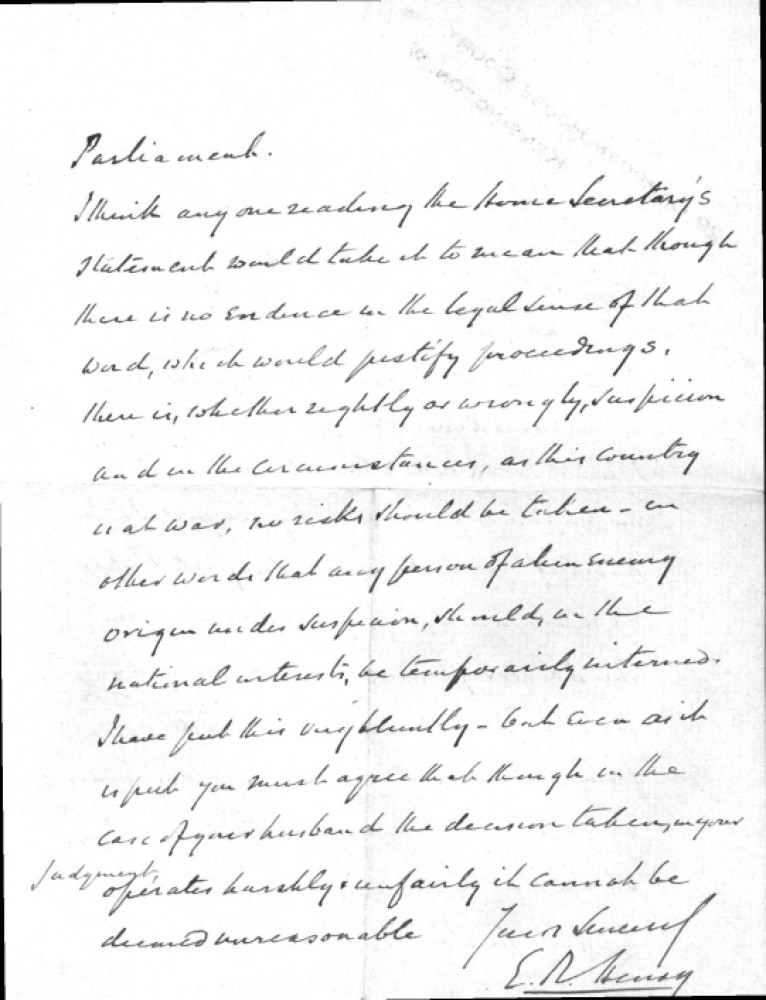 Parliament.
I think any one reading the Home Secretary's
statement would take it to mean that though
there is no Evidence in the legal sense of that
word, which would justify proceedings,
there is, whether rightly or wrongly, suspicion
and in the circumstances, as this country
is at war, no risks should be taken - in
other words that any person of alien enemy
origin under suspicion, should, in the
national interests, be temporarily interned.
I have put this very bluntly - but even as it
is put you must agree that though in the
case of your husband the decision taken, in your
judgment,
operates harshly & unfairly it cannot be
deemed unreasonable
Yours Sincerely
E. R. Henry
COURT
KENSINGTON. W